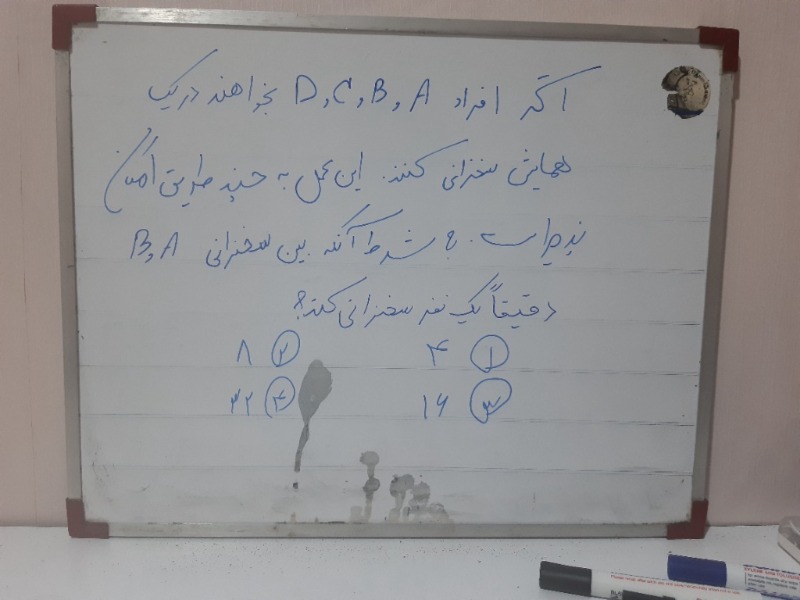 اگر افراد A , B , C , D بخواهند در یک
همایش سخنرانی کنند. این عمل به چند طریق امکان
پذیر است. به شرط آنکه بین سخنرانی A , B
دقیقاً یک نفر سخنرانی کند؟
۱) ۴ ۲) ۸
۳) ۱۶ ۴) ۳۲